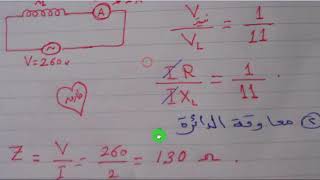 A
V = 260 v
V / V_L = 1 / 11
I R / I X_L = 1 / 11
② معاوقة الدائرة
Z = V / I = 260 / 2 = 130 Ω .